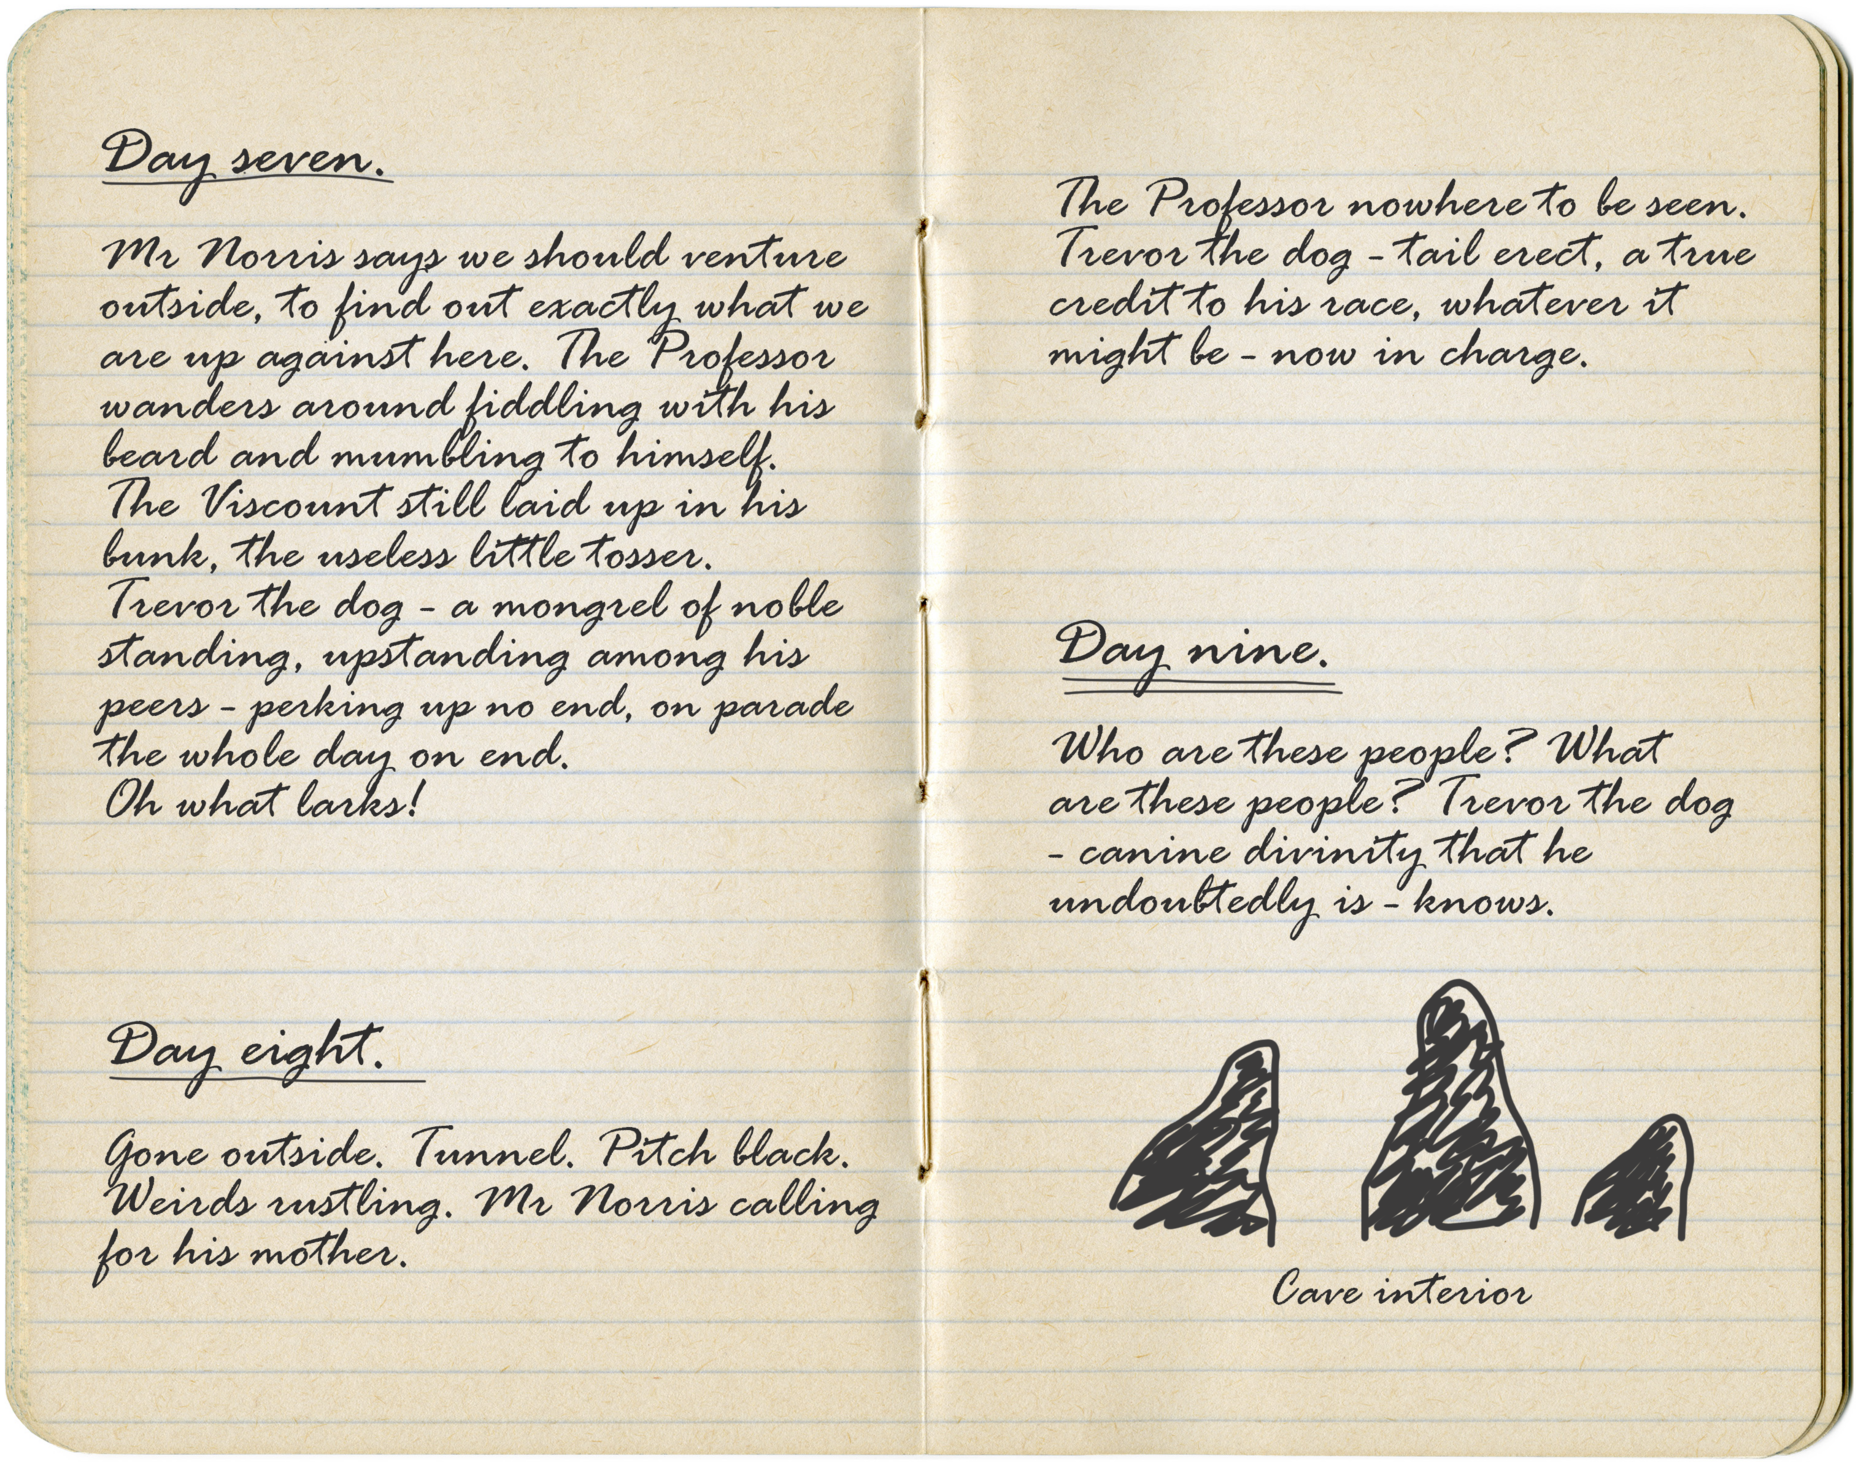 Day seven.
Mr Norris says we should venture
outside, to find out exactly what we
are up against here. The Professor
wanders around fiddling with his
beard and mumbling to himself.
The Viscount still laid up in his
bunk, the useless little tosser.
Trevor the dog - a mongrel of noble
standing, upstanding among his
peers - perking up no end, on parade
the whole day on end.
Oh what larks!
Day eight.
Gone outside. Tunnel. Pitch black.
Weirds rustling. Mr Norris calling
for his mother.
The Professor nowhere to be seen.
Trevor the dog - tail erect, a true
credit to his race, whatever it
might be - now in charge.
Day nine.
Who are these people? What
are these people? Trevor the dog
- canine divinity that he
undoubtedly is - knows.
Cave interior